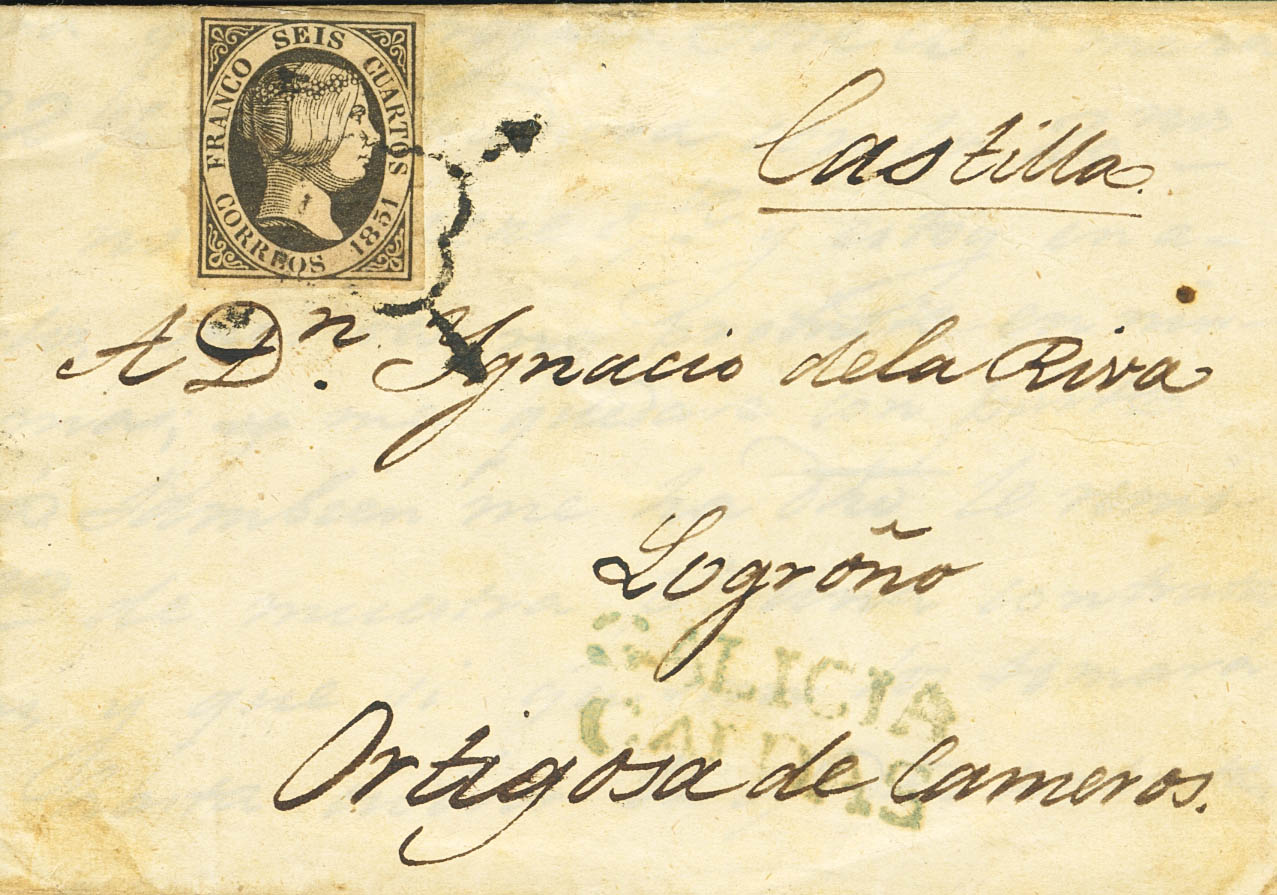 FRANCO SEIS CUARTOS
CORREOS 1851
Castilla.
A Dn. Ygnacio dela Riva
Logroño
GALICIA
Ortigosa de Cameros.